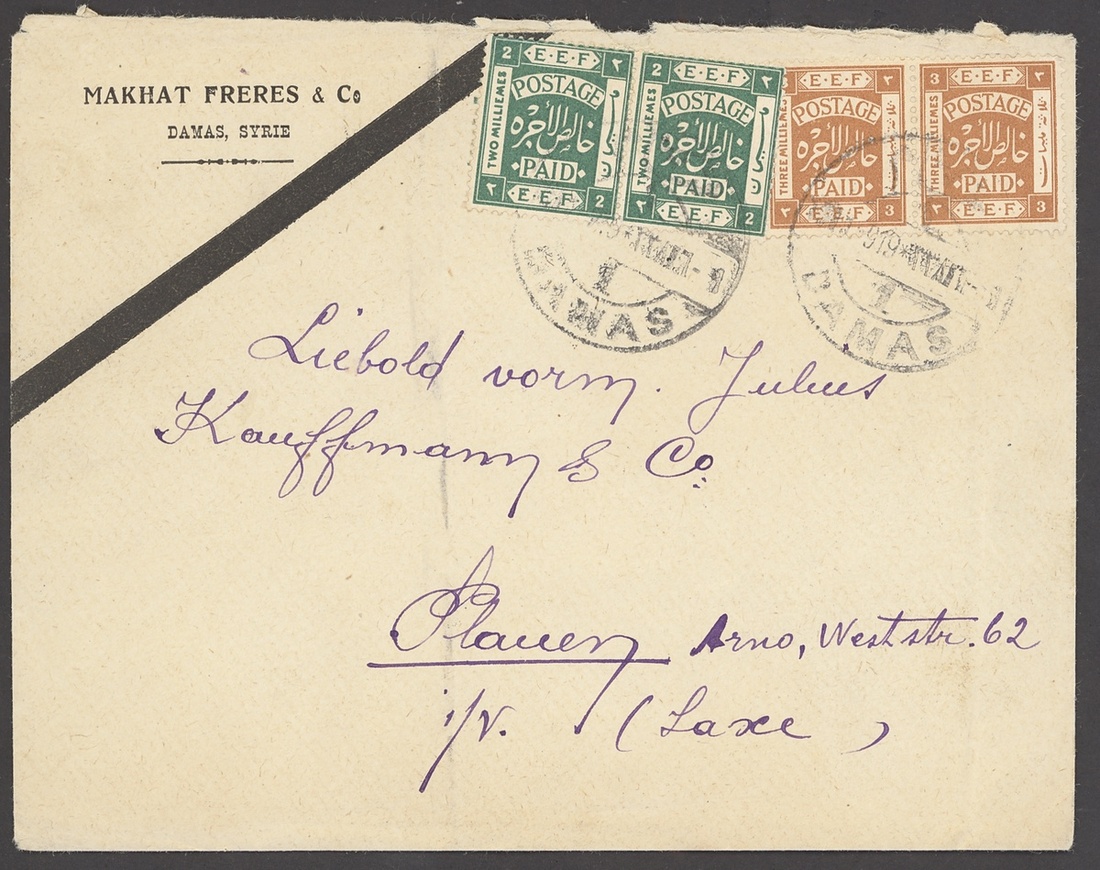 MAKHAT FRERES & Co
DAMAS, SYRIE
2 E.E.F ٢
TWO MILLIEMES
POSTAGE
خالص الأجرة
PAID
٢ E.E.F 2
2 E.E.F ٢
TWO MILLIEMES
POSTAGE
خالص الأجرة
PAID
٢ E.E.F 2
E.E.F ٣
THREE MILLIEMES
POSTAGE
خالص الأجرة
PAID
٣ E.E.F 3
3 E.E.F ٣
THREE MILLIEMES
POSTAGE
خالص الأجرة
PAID
٣ E.E.F 3
1
DAMAS
919
1
DAMAS
Liebold vorm. Julius
Kauffmann & Co.
Plauen Arno, Weststr. 62
i/V. (Saxe)